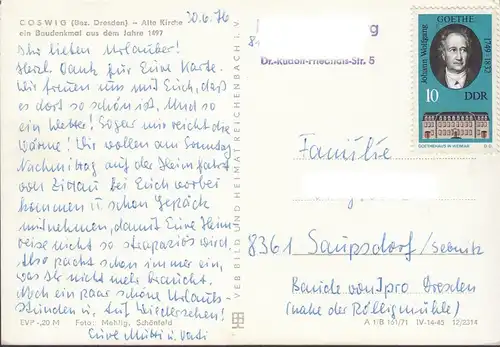 COSWIG (Bez. Dresden) - Alte Kirche
ein Baudenkmal aus dem Jahre 1497
30.6.76
Ihr lieben Urlauber!
Herzl. Dank für Eure Karte.
Wir freuen uns mit Euch, daß
es dort so schön ist. Und so
ein Wetter! Sogar mir reicht die
Wärme! Wir wollen am Sonntag
Nachmittag auf der Heimfahrt
von Zittau bei Euch vorbei
kommen u. schon Gepäck
mitnehmen, damit Eure Heim
reise nicht so strapaziös wird.
Also packt schon immer ein,
was Ihr nicht mehr braucht.
Noch ein paar schöne Urlaubs-
stunden u. Auf Wiedersehen!
Eure Mutti u. Vati
EVP -,20 M Foto: Mehlig, Schönfeld
VERBILD UND HEIMAT REICHENBACH I. V.
g
Dr.-Rudolf-Friedrichs-Str. 5
GOETHE
Johann Wolfgang
1749-1832
10 DDR
GOETHEHAUS IN WEIMAR
Familie
8361 Saupsdorf/Sebnitz
Baude von Ipro Dresden
(nahe der Rölligmühle)
A 1/B 161/71 IV-14-45 12/2314